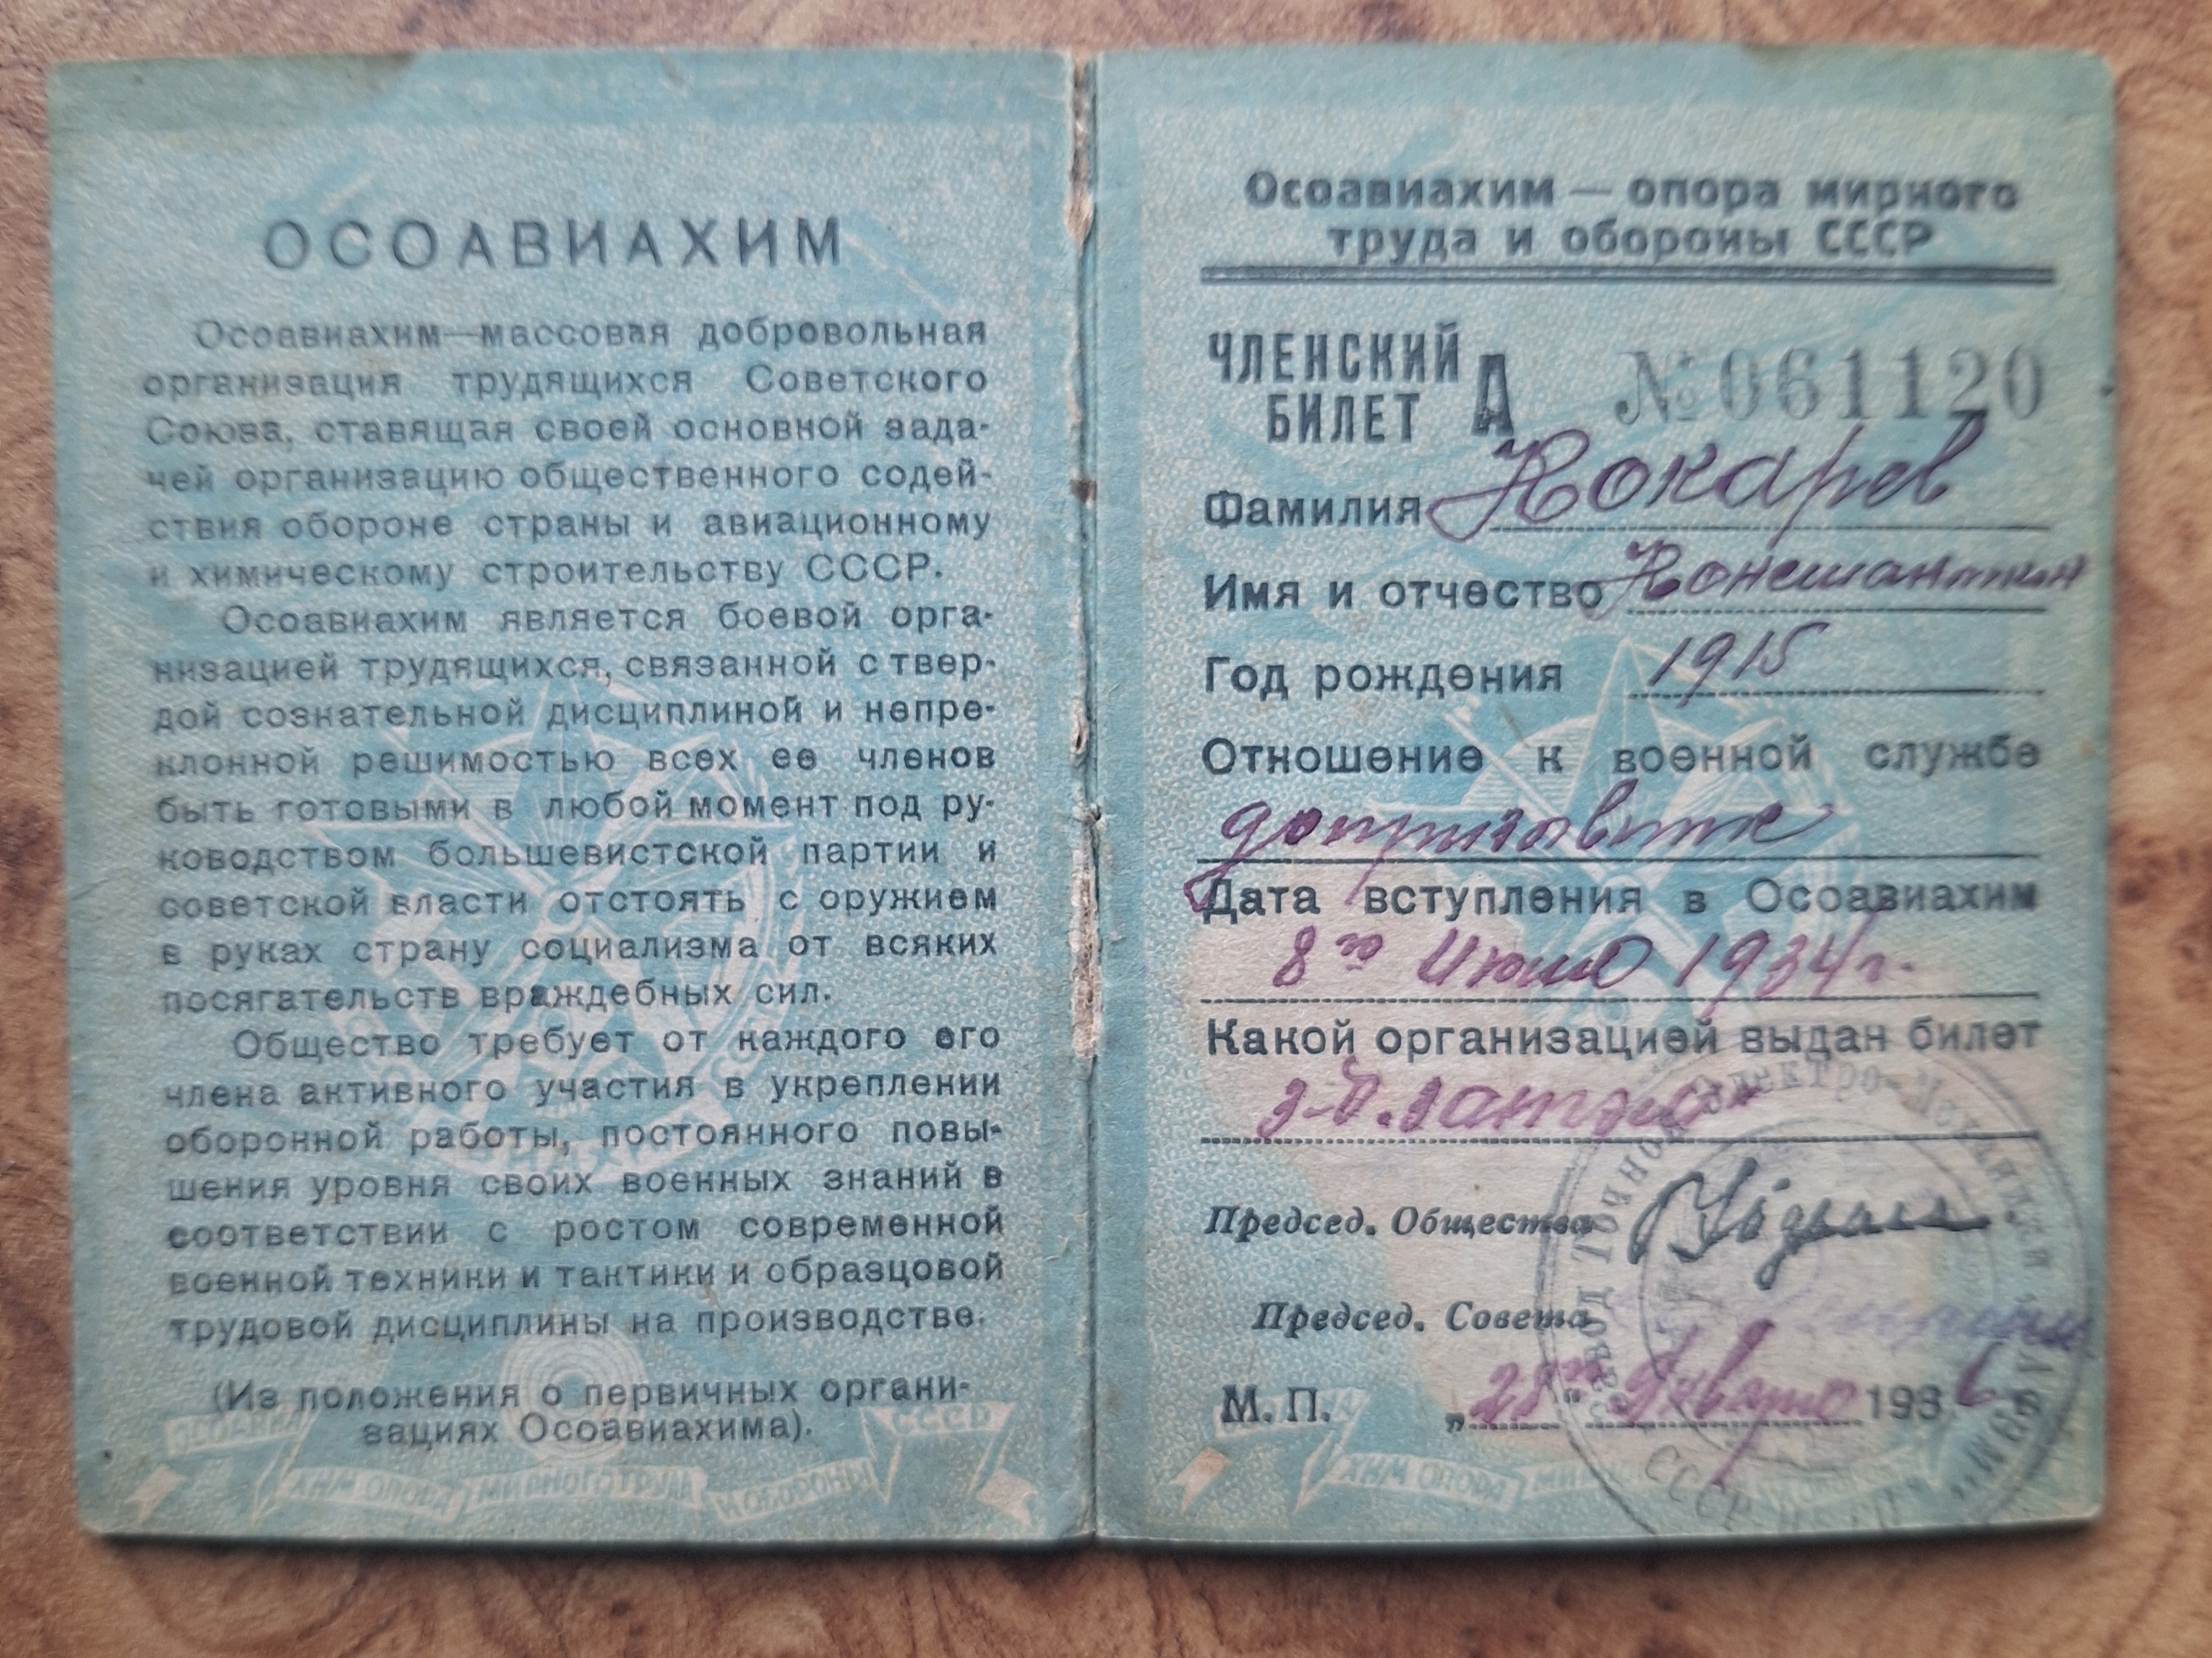 ОСОАВИАХИМ
Осоавиахим—массовая добровольная
организация трудящихся Советского
Союза, ставящая своей основной зада-
чей организацию общественного содей-
ствия обороне страны и авиационному
и химическому строительству СССР.
Осоавиахим является боевой орга-
низацией трудящихся, связанной с твер-
дой сознательной дисциплиной и непре-
клонной решимостью всех ее членов
быть готовыми в любой момент под ру-
ководством большевистской партии и
советской власти отстоять с оружием
в руках страну социализма от всяких
посягательств враждебных сил.
Общество требует от каждого его
члена активного участия в укреплении
оборонной работы, постоянного повы-
шения уровня своих военных знаний в
соответствии с ростом современной
военной техники и тактики и образцовой
трудовой дисциплины на производстве.
(Из положения о первичных органи-
зациях Осоавиахима).
ОСОАВИА ХИМ ОПОРА МИРНОГО ТРУДА И ОБОРОНЫ СССР
Осоавиахим — опора мирного
труда и обороны СССР
ЧЛЕНСКИЙ
БИЛЕТ А №061120
Фамилия Кокарев
Имя и отчество Константин
Год рождения 1915
Отношение к военной службе
допризывник
Дата вступления в Осоавиахим
8го Июля 1934 г.
Какой организацией выдан билет
Председ. Общества
Председ. Совета
М. П. „28го" Января 1936 г.
ХИМ ОПОРА
Завод Точной Электро-Механики
СССР